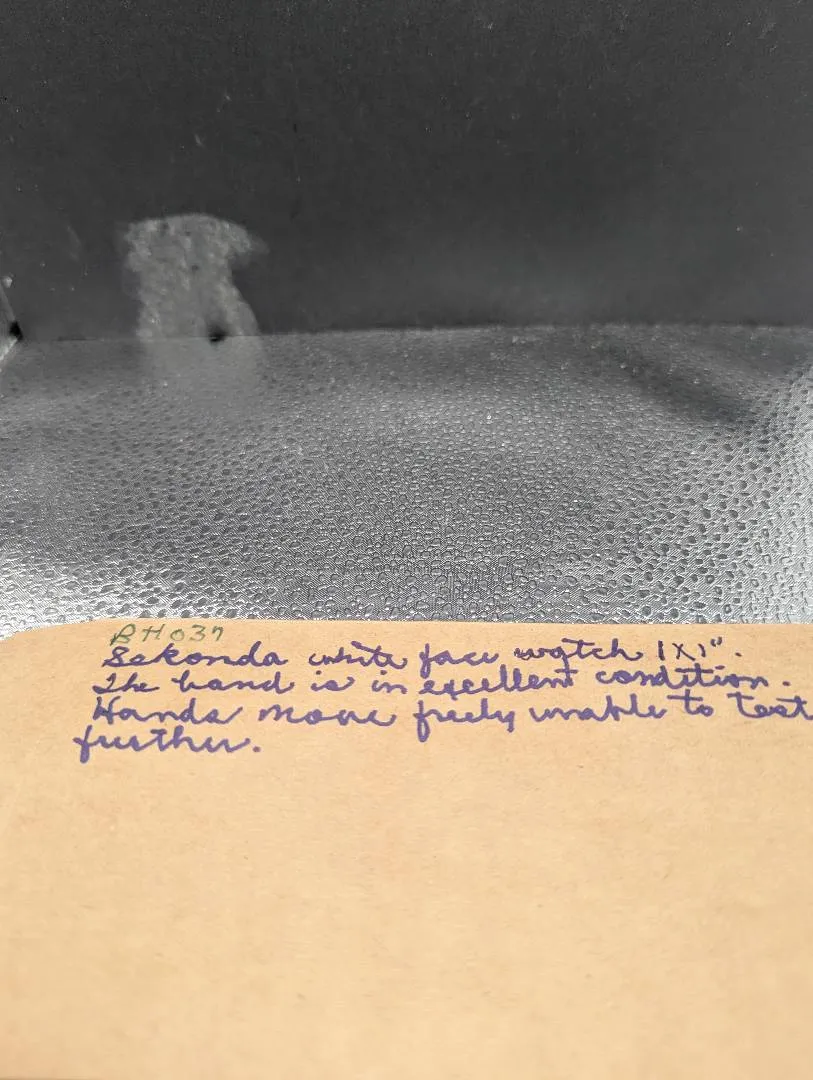 BH037
Sekonda white face watch 1x1".
The band is in excellent condition.
Hands move freely unable to test
further.